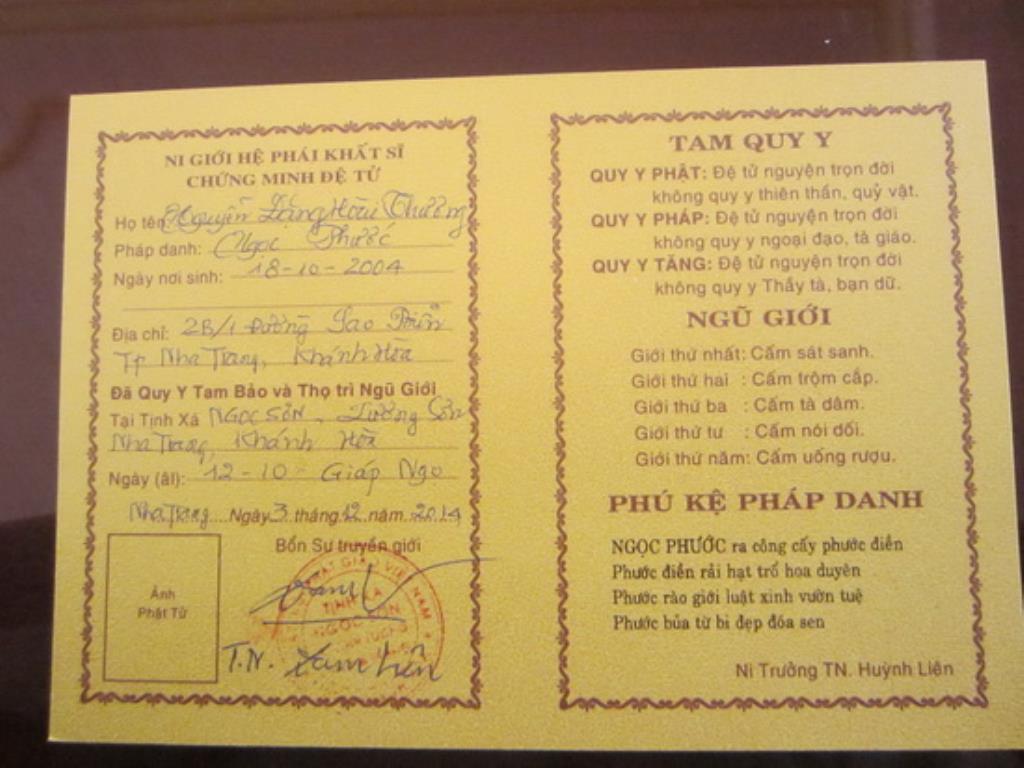 NI GIỚI HỆ PHÁI KHẤT SĨ
CHỨNG MINH ĐỆ TỬ
Họ tên: Nguyễn Đặng Hoài Thương
Pháp danh: Ngọc Phước
Ngày nơi sinh: 18-10-2004
Địa chỉ: 2B/1 Đường Sao Biển
Tp Nha Trang, Khánh Hòa
Đã Quy Y Tam Bảo và Thọ trì Ngũ Giới
Tại Tịnh Xá NGỌC SƠN - Lương Sơn
Nha Trang, Khánh Hòa
Ngày (âl): 12-10- Giáp Ngọ
Nha Trang Ngày 3 tháng 12 năm 2014
Bổn Sư truyền giới
Ảnh
Phật Tử
TỊNH XÁ
NGỌC SƠN
T.N. Liên
TAM QUY Y
QUY Y PHẬT: Đệ tử nguyện trọn đời
không quy y thiên thần, quỷ vật.
QUY Y PHÁP: Đệ tử nguyện trọn đời
không quy y ngoại đạo, tà giáo.
QUY Y TĂNG: Đệ tử nguyện trọn đời
không quy y Thầy tà, bạn dữ.
NGŨ GIỚI
Giới thứ nhất: Cấm sát sanh.
Giới thứ hai : Cấm trộm cắp.
Giới thứ ba : Cấm tà dâm.
Giới thứ tư : Cấm nói dối.
Giới thứ năm: Cấm uống rượu.
PHÚ KỆ PHÁP DANH
NGỌC PHƯỚC ra công cấy phước điền
Phước điền rải hạt trổ hoa duyên
Phước rào giới luật xinh vườn tuệ
Phước bủa từ bi đẹp đóa sen
Ni Trưởng TN. Huỳnh Liên